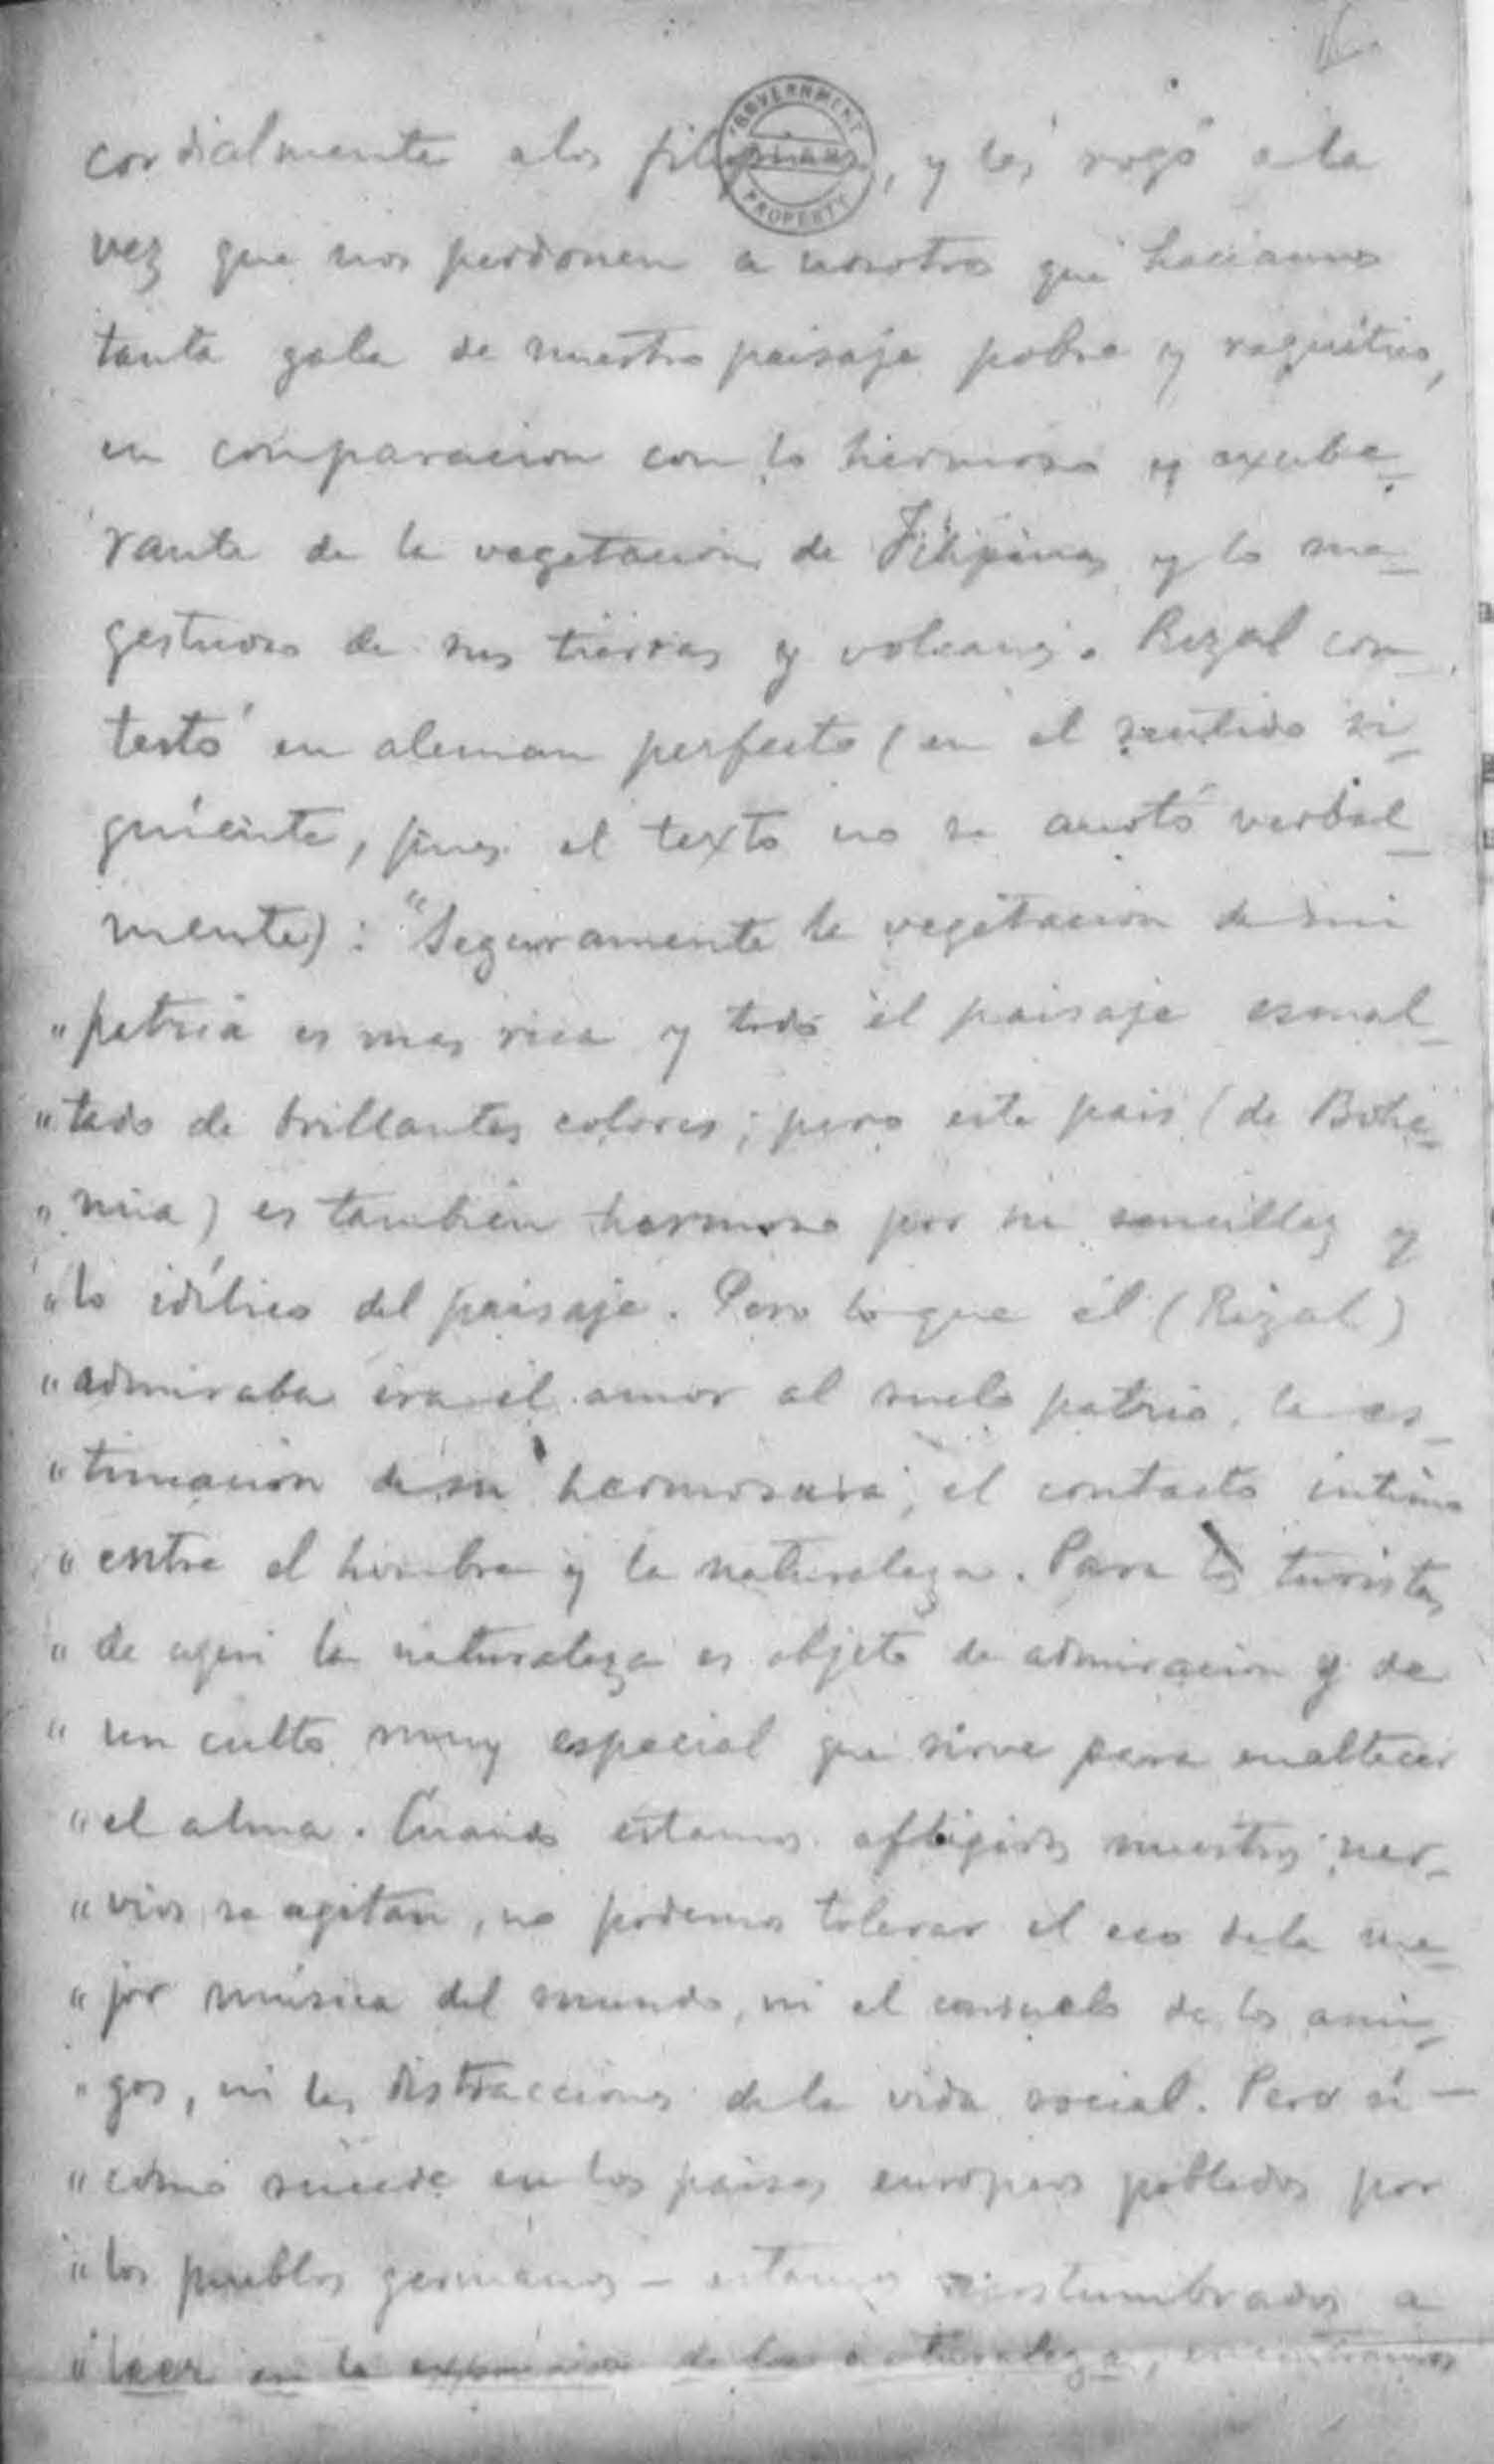 GOVERNMENT PROPERTY
cordialmente a los filipinos, y les rogó a la
vez que nos perdonen a nosotros que haciamos
tanta gala de nuestro paisaje pobre y raquítico,
en comparacion con lo hermoso y exube-
rante de la vegetacion de Filipinas y lo ma-
gestuoso de sus tierras y volcanes. Rizal con-
testó en aleman perfecto (en el sentido si-
guiente, pues el texto no se anotó verbal-
mente): "Seguramente la vegetacion de mi
" patria es mas rica y todo el paisaje esmal-
" tado de brillantes colores; pero este pais (de Bohe-
" mia) es tambien hermoso por su sencillez y
" lo idílico del paisaje. Pero lo que él (Rizal)
" admiraba era el amor al suelo patrio, la es-
" timacion de su hermosura, el contacto intimo
" entre el hombre y la naturaleza. Para los turistas
" de aquí la naturaleza es objeto de admiracion y de
" un culto muy especial que sirve para enaltecer
" el alma. Cuando estamos afligidos nuestros ner-
" vios se agitan, no podemos tolerar el eco de la me-
" jor música del mundo, ni el consuelo de los ami-
" gos, ni las distracciones de la vida social. Pero si —
" como sucede en los paises europeos poblados por
" los pueblos germanos — estamos acostumbrados a
" leer en la expresion de la naturaleza, encontramos